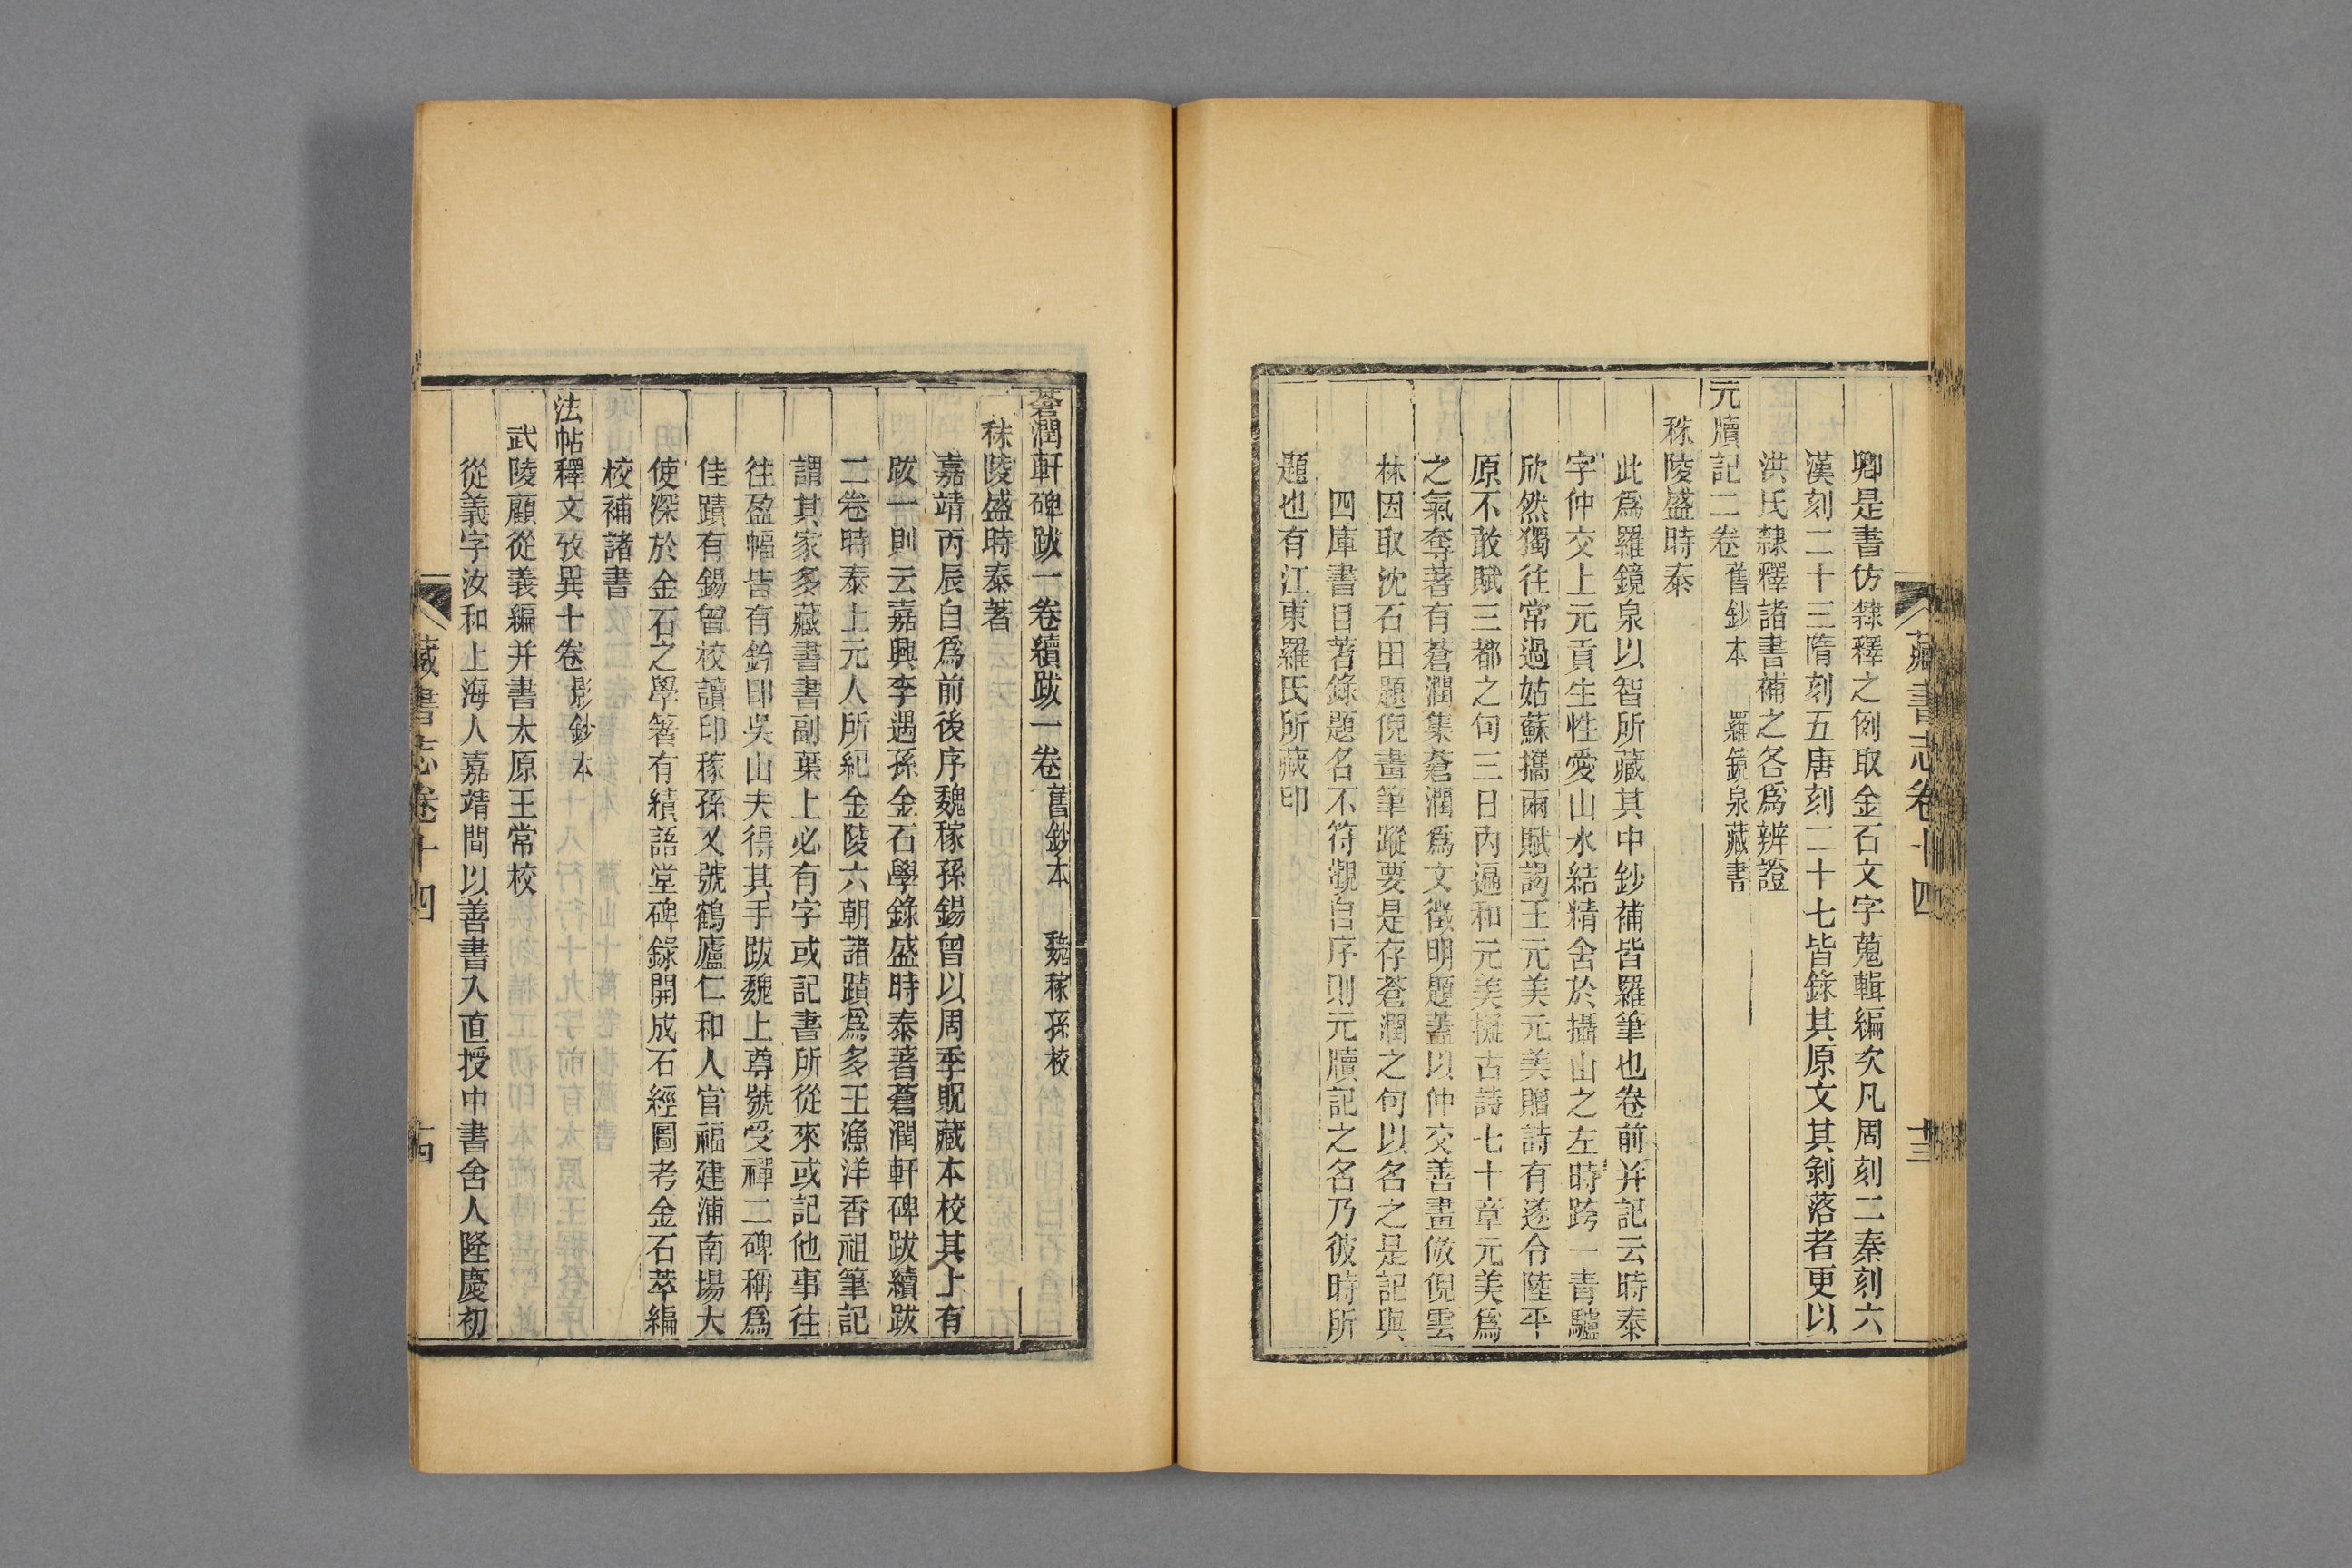 藏書志卷十四 十三
卿是書仿隸釋之例取金石文字蒐輯編次凡周刻二秦刻六
漢刻二十三隋刻五唐刻二十七皆錄其原文其剝落者更以
洪氏隸釋諸書補之各爲辨證
元牘記二卷 舊鈔本 羅鏡泉藏書
秣陵盛時泰
此爲羅鏡泉以智所藏其中鈔補皆羅筆也卷前并記云時泰
字仲交上元貢生性愛山水結精舍於攝山之左時跨一靑驢
欣然獨往常過姑蘇攜兩賦謁王元美元美贈詩有遂令陸平
原不敢賦三都之句三日內遍和元美擬古詩七十章元美爲
之氣奪著有蒼潤集蒼潤爲文徵明題蓋以仲交善畫倣倪雲
林因取沈石田題倪畫筆蹤要是存蒼潤之句以名之是記與
四庫書目著錄題名不符觀自序則元牘記之名乃彼時所
題也有江東羅氏所藏印
蒼潤軒碑跋一卷續跋一卷 舊鈔本 魏稼孫校
秣陵盛時泰著
嘉靖丙辰自爲前後序魏稼孫錫曾以周季貺藏本校其上有
跋一則云嘉興李遇孫金石學錄盛時泰著蒼潤軒碑跋續跋
二卷時泰上元人所紀金陵六朝諸蹟爲多王漁洋香祖筆記
謂其家多藏書書副葉上必有字或記書所從來或記他事往
往盈幅皆有鈐印吳山夫得其手跋魏上尊號受禪二碑稱爲
佳蹟有錫曾校讀印稼孫又號鶴廬仁和人官福建浦南場大
使深於金石之學箸有績語堂碑錄開成石經圖考金石萃編
校補諸書
法帖釋文攷異十卷 影鈔本
武陵顧從義編并書太原王常校
從義字汝和上海人嘉靖間以善書入直授中書舍人隆慶初
藏書志卷十四 十四